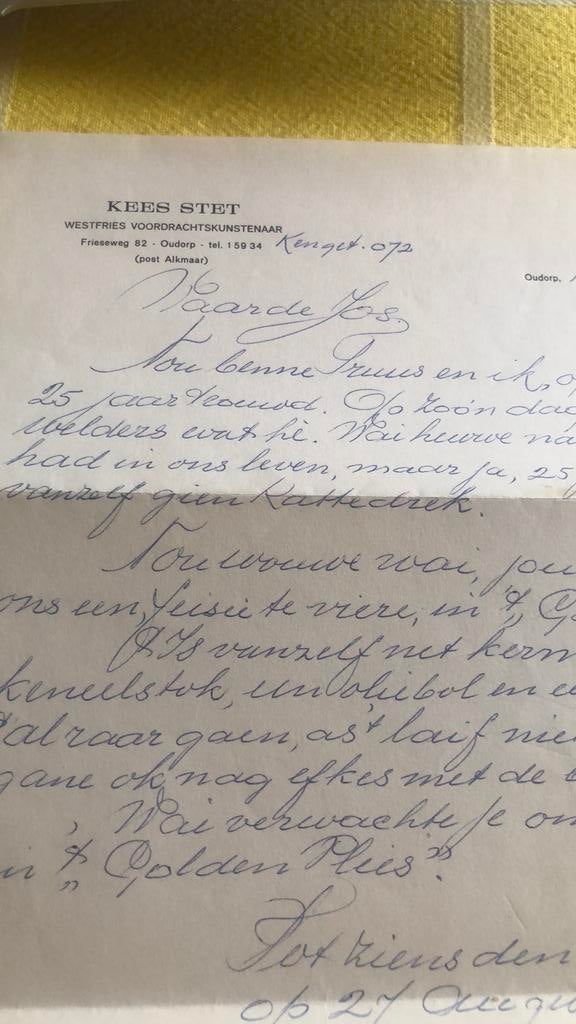 KEES STET
WESTFRIES VOORDRACHTSKUNSTENAAR
Frieseweg 82 - Oudorp - tel. 15934 Kenget. 072
(post Alkmaar)
Oudorp,
Waarde Jos
Nou benne Truus en ik, o
25 jaar trouwd. Op zoôn dag
welders wat hè. Wai hewwe na
had in ons leven, maar ja, 25
vanzelf gien kattedrek.
Nou wouwe wai, jou
ons een feisie te viere, in 't, Go
't Is vanzelf net kerm
keneelstok, un oliebol en ee
't al raar gaen, as 't laif nie
gane ok nag efkes met de b
Wai verwachte je om
in 't „Golden Plies".
Tot ziens den
op 27 Augu